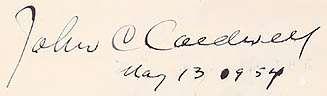 John C Caldwell
May 13 09 54